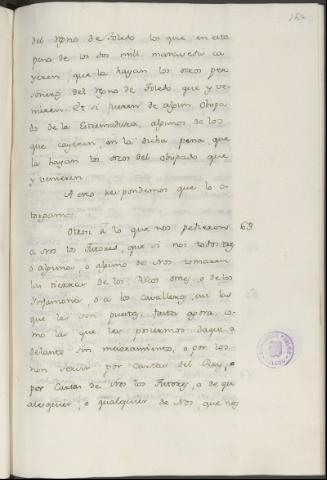 del Rgno de Toledo los que en esta
pena de los dos mill maravedis ca
yeren, que la hayan los otros per
soneros del Rgno de Toledo que y ve
nieren. Et si fueren de algun Obispa
do de la Estremadura, algunos de los
que cayeren en la dicha pena, que
la hayan los otros del Obispado que
y venieren.
A esto respondemos que lo o-
torgamos.
Otrosi à lo que nos petieron 63.
a nos los Tutores, que si nos todos tres
o alguno, o alguno de Nos tomaren
las tierras de los Ricos omes, o de los
Infanzones, o a los caballeros, en las
que les son puestas fasta agora, co
mo las que les pusiermos daqui a
delante sin merescimiento, o por les
non venir por cartas del Rey, o
por Cartas de Nos los Tutores, o de qu
alesquier, o qualquier de Nos, que nos